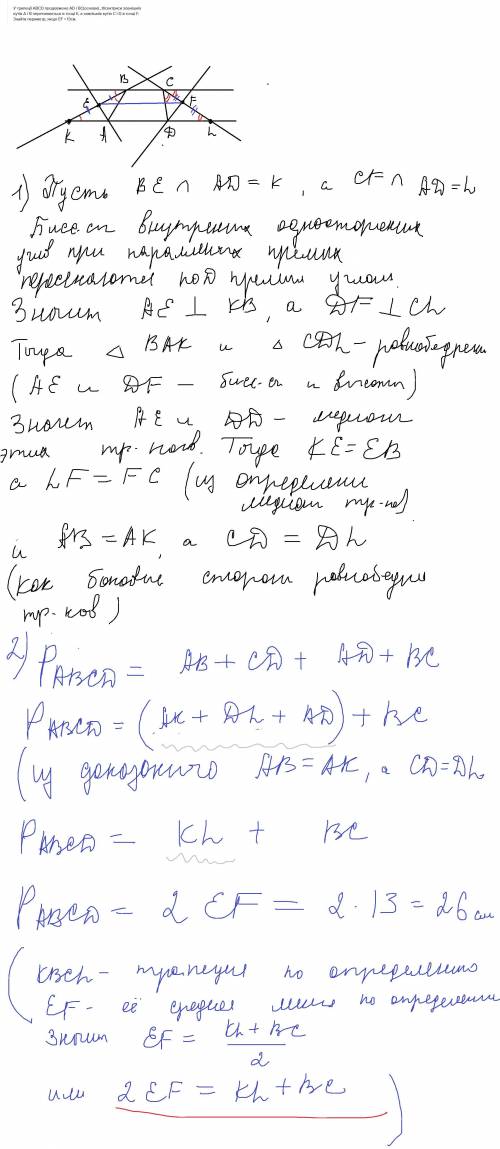 У трапеції ABCD продовжено AD і BC(основи). Бісектриси зовнішніх
кутів A і B перетинаються в точці E, а зовнішніх кутів C і D в точці F.
Знайти периметр, якщо EF =13см.
B C
E F
K A D L
1) Пусть BE ∩ AD = K, а CF ∩ AD = L
Бисс-сы внутренних односторонних
углов при параллельных прямых
пересекаются под прямым углом.
Значит AE ⊥ KB, а DF ⊥ CL
Тогда △ BAK и △ CDL - равнобедрен
(AE и DF - бисс-сы и высоты)
Значит AE и DD - медианы
этих тр-ков. Тогда KE = EB
а LF = FC (из определени
медиан тр-ка)
и AB = AK, а CD = DL
(как боковые стороны равнобедр
тр-ков)
2) P ABCD = AB + CD + AD + BC
P ABCD = (AK + DL + AD) + BC
(из доказаного AB = AK, а CD = DL
P ABCD = KL + BC
P ABCD = 2 EF = 2 · 13 = 26 см
(KBCL - трапеция по определению
EF - её средняя линия по определени
Значит EF = KL + BC / 2
или 2 EF = KL + BC )